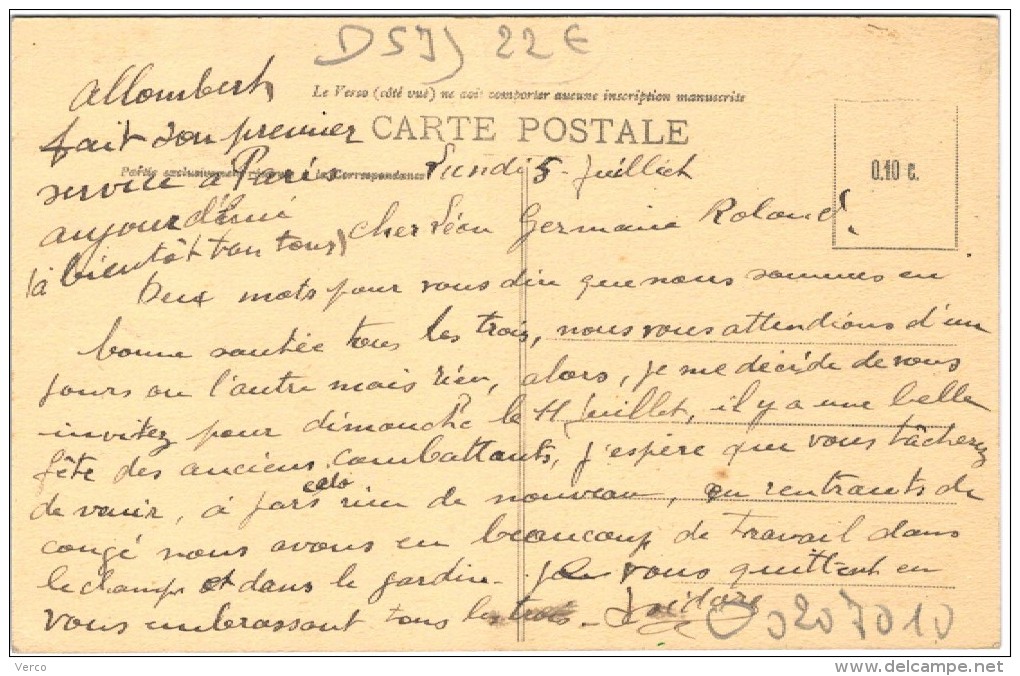 DSJ) 22 €
Allombert
Le Verso (côté vue) ne doit comporter aucune inscription manuscrite
fait son premier
CARTE POSTALE
0.10 c.
Partie exclusivement la Correspondance
service à Paris
Lundi 5 - Juillet
aujourd'hui
Cher Léon Germaine Roland,
(à bientôt tous)
Deux mots pour vous dire que nous sommes en
bonne santée tous les trois, nous vous attendions d'un
jours ou l'autre mais rien, alors, je me décide de vous
invitez pour dimanche le 11 Juillet, il y a une belle
fête des anciens combattants, j'espère que vous tâcherez
de venir, à part cela rien de nouveau, en rentrants de
congé nous avons eu beaucoup de travail dans
le champ et dans le jardin. Je vous quittent en
vous embrassant tous les trois - Isidore
00207010
Verco
www.delcampe.net